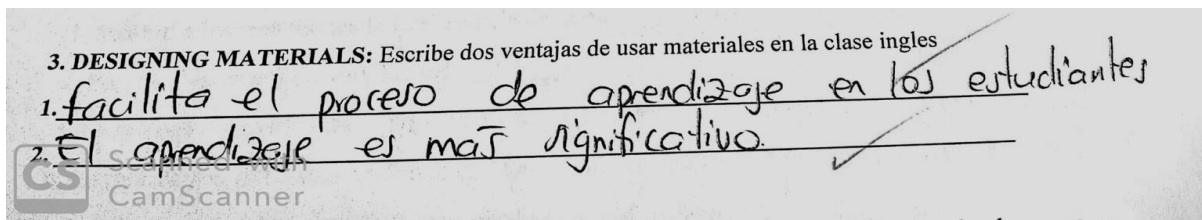 3. DESIGNING MATERIALS: Escribe dos ventajas de usar materiales en la clase ingles
1. facilita el proceso de aprendizaje en los estudiantes
2. El aprendizaje es mas significativo.
CS Scanned with
CamScanner